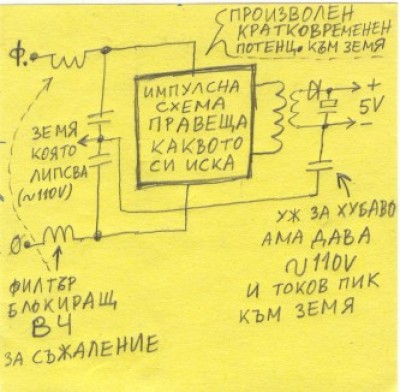 ПРОИЗВОЛЕН
КРАТКОВРЕМЕНЕН
ПОТЕНЦ. КЪМ ЗЕМЯ
Ф.
ИМПУЛСНА
СХЕМА
ПРАВЕЩА
КАКВОТО
СИ ИСКА
+
5V
–
ЗЕМЯ
КОЯТО
ЛИПСВА
(~110V)
0
ФИЛТЪР
БЛОКИРАЩ
ВЧ
ЗА СЪЖАЛЕНИЕ
УЖ ЗА ХУБАВО
АМА ДАВА
~110V
И ТОКОВ ПИК
КЪМ ЗЕМЯ